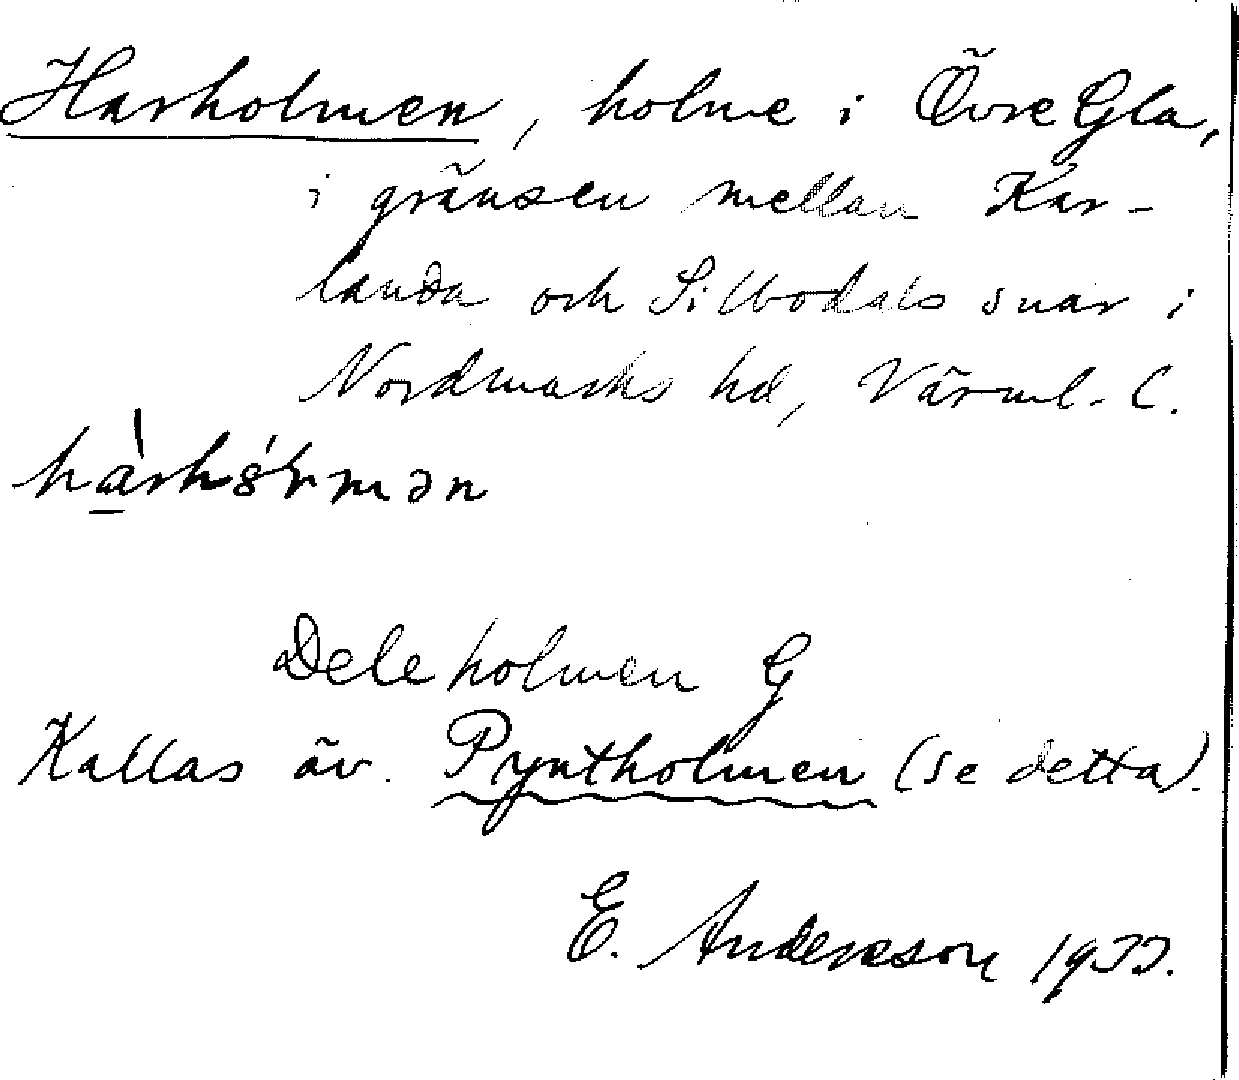 Harholmen, holme i Övre Gla,
i gränsen mellan Kar-
landa och Silbodals snar i
Nordmarks hd, Värml. l.
Deleholmen G
Kallas äv. Pyntholmen (se detta).
E. Andersson 1933.